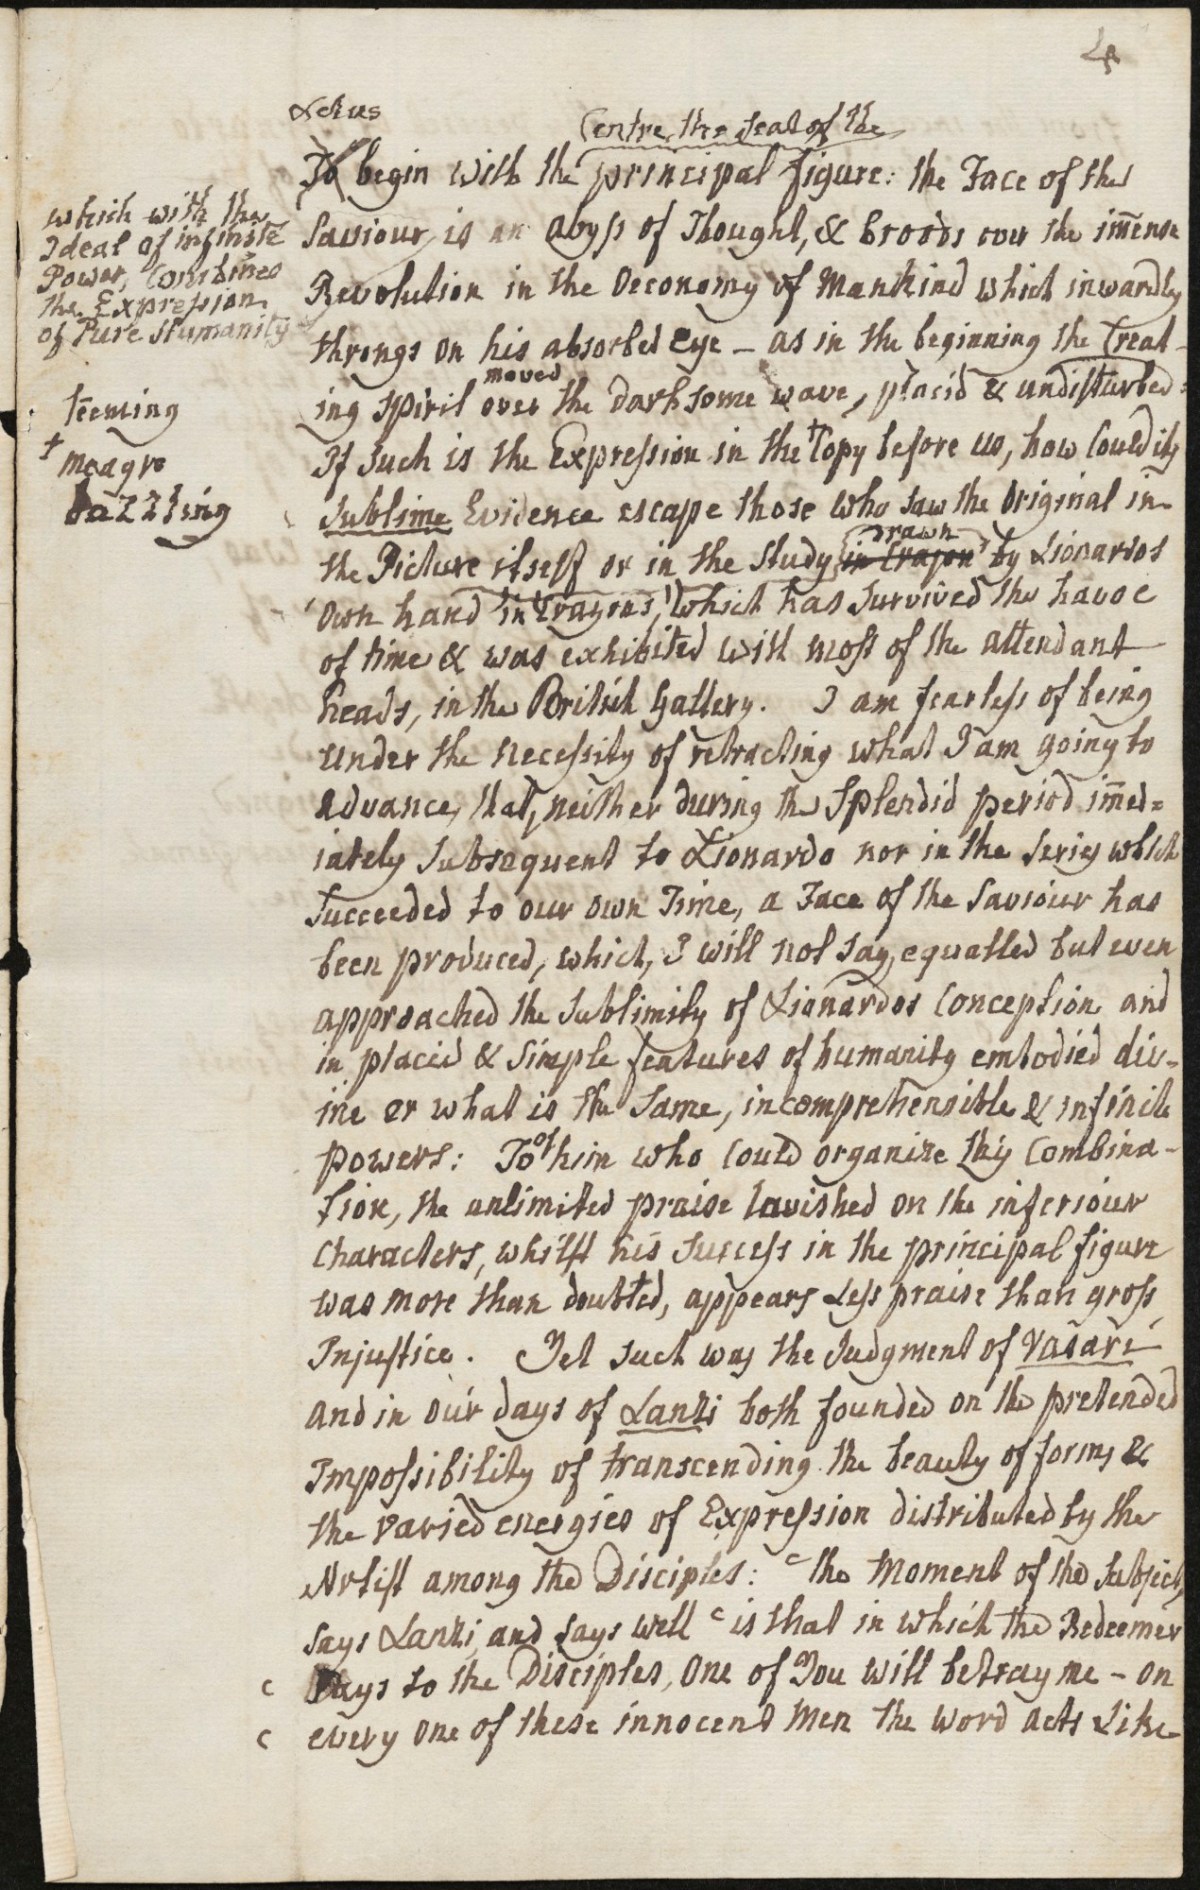 4
& let us
Centre, the seat of the
To begin with the principal figure: the Face of the
Saviour, is an abyss of Thought, & broods over the im̄ense
Revolution in the Oeconomy of Mankind which inwardly
throngs on his absorbed Eye – as in the beginning the Creat-
moved
ing Spirit over the darksome wave, placid & undisturbed:
If Such is the Expression in the + Copy before us, how Could its
Sublime Evidence escape those who saw the Original in
drawn
the Picture itself or in the Study in Crayon by Lionardos
own hand in Crayons, which has Survived the havoc
of time & was exhibited with most of the attendant
heads, in the British Gallery. I am fearless of being
under the necessity of retracting what I am going to
advance, that, neither during the Splendid period im̄ed=
iately Subsequent to Lionardo nor in the Series which
Succeeded to our own Time, a Face of the Saviour has
been produced, which, I will not say, equalled but even
approached the Sublimity of Lionardos Conception and
in placid & Simple features of humanity embodied div-
ine or what is the Same, incomprehensible & infinite
powers: To of him who Could organize this Combina-
tion, the unlimited praise lavished on the inferiour
Characters, whilst his Success in the principal figure
was more than doubted, appears Less praise than gross
Injustice. Yet Such was the Judgment of Vasari
and in our days of Lanzi both founded on the pretended
Impossibility of transcending the beauty of forms &
the varied energies of Expression distributed by the
Artist among the Disciples: ' the Moment of the Subject,
says Lanzi, and Says well ' is that in which the Redeemer
' Says to the Disciples, One of You will betray me – on
' every one of these innocent Men the word acts Like
which with the
Ideal of infinite
Power, Combines
the Expression
of Pure Humanity
teeming
+ meagre
dazzling